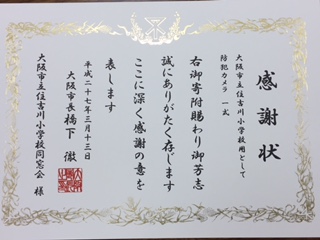 感謝状
大阪市立住吉川小学校用として
防犯カメラ 一式
右御寄附賜わり御芳志
誠にありがたく存じます
ここに深く感謝の意を
表します
平成二十七年三月十三日
大阪市長橋下 徹
大阪市立住吉川小学校同窓会 様